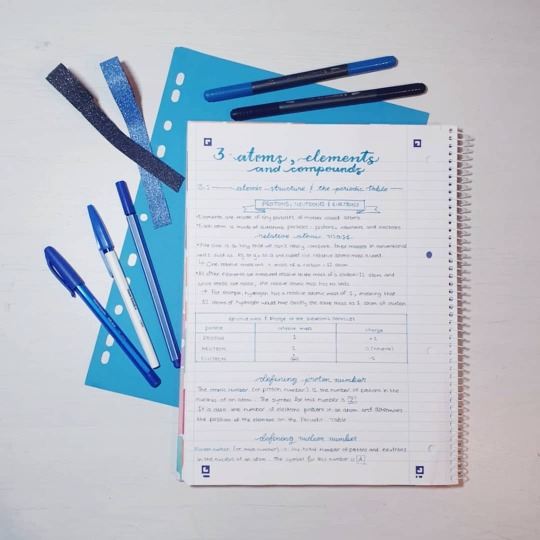 3 atoms, elements
and compounds
3.1 atomic structure & the periodic table
PROTONS, NEUTRONS & ELECTRONS
Elements are made of tiny particles of matter called atoms
Each atom is made of subatomic particles; protons, neutrons and electrons
relative atomic mass
so tiny that we can't really compare their masses in conventional
units such as kg or g, so a unit called the relative atomic mass is used
One relative atomic unit = mass of a carbon-12 atom
All other elements are measured relative to the mass of a carbon-12 atom, and
since these are ratios, the relative atomic mass has no units
→ For example, hydrogen has a relative atomic mass of 1, meaning that
12 atoms of hydrogen would have exactly the same mass as 1 atom of carbon
relative mass & charge of the subatomic particles
particle relative mass charge
PROTON 1 +1
NEUTRON 1 0 (neutral)
ELECTRON -1
defining proton number
The atomic number (or proton number) is the number of protons in the
nucleus of an atom. The symbol for this number is Z
It is also the number of electrons present in an atom and determines
the position of the element on the Periodic Table
defining nucleon number
Nucleon number (or mass number) is the total number of protons and neutrons
in the nucleus of an atom. The symbol for this number is A